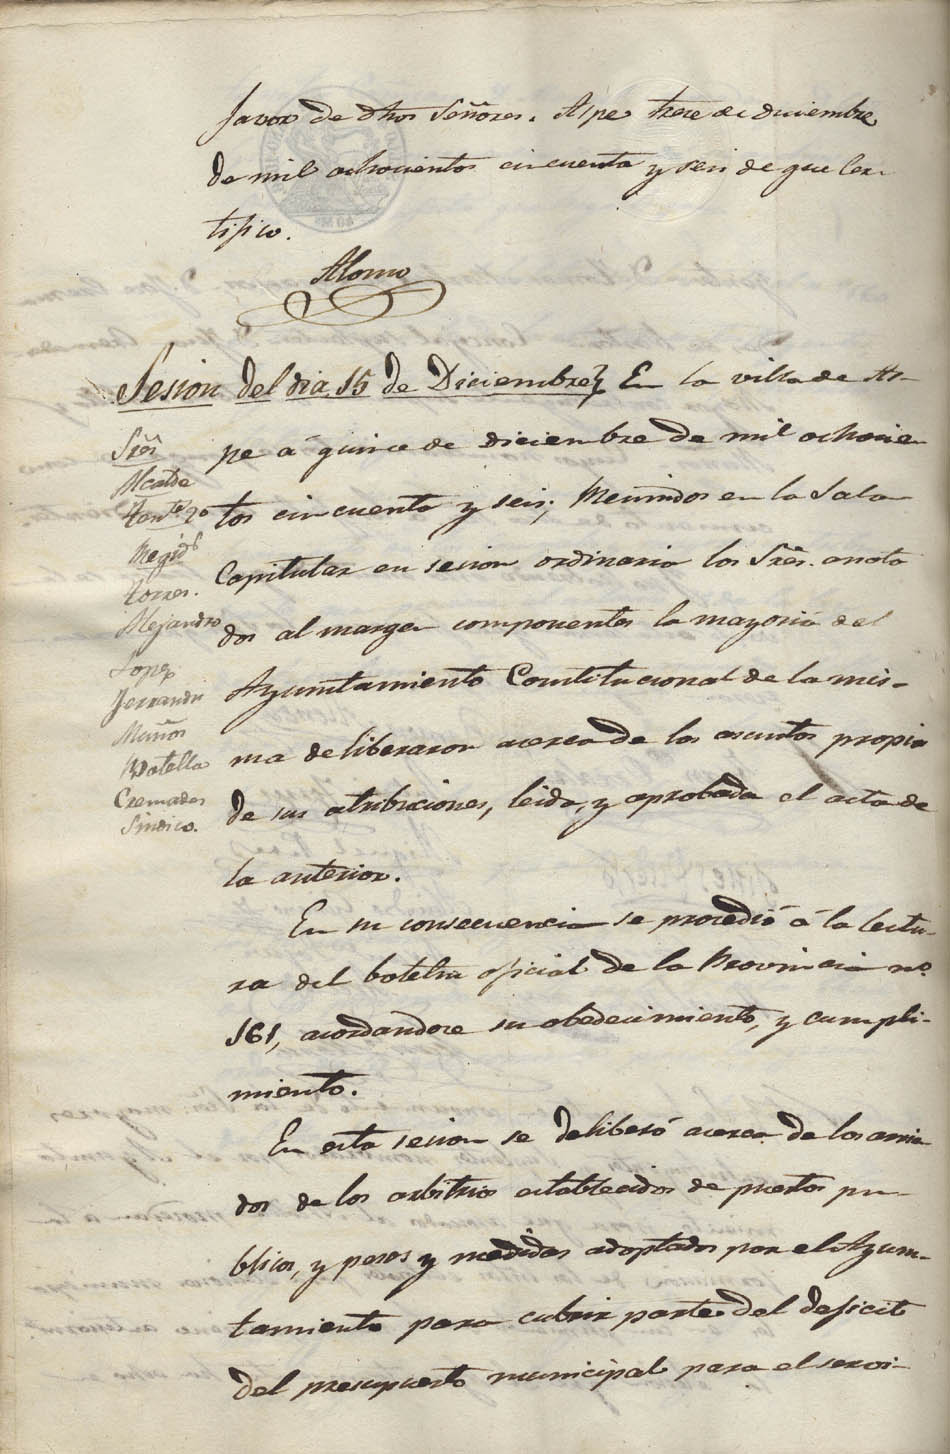 favor de dhos Señores. Aspe trece de diciembre
de mil ochocientos cincuenta y seis de que cer-
tifico.
Alonso
Sesion del dia 15 de Diciembre En la villa de As-
pe á quince de diciembre de mil ochocien
tos cincuenta y seis; Reunidos en la Sala
Capitular en sesion ordinaria los Sres. anota
dos al margen componentes la mayoria del
Ayuntamiento Constitucional de la mis-
ma deliberaron acerca de los asuntos propios
de sus atribuciones, leida, y aprobada el acta de
la anterior.
Sres
Alcalde
Tente 2o
Regids
Torres.
Alejandro
Lopez
Ferrandis
Muños
Botella
Cremades
Sindico.
En su consecuencia se procedió á la lectu-
ra del boletin oficial de la Provincia no.
161, acordandose su obedecimiento, y cumpli-
miento.
En esta sesion se deliberó acerca de los arrien
dos de los arbitrios establecidos de puestos pu-
blicos, y pesos y medidas adoptados por el Ayun-
tamiento para cubrir parte del deficit
del presupuesto municipal para el servi-